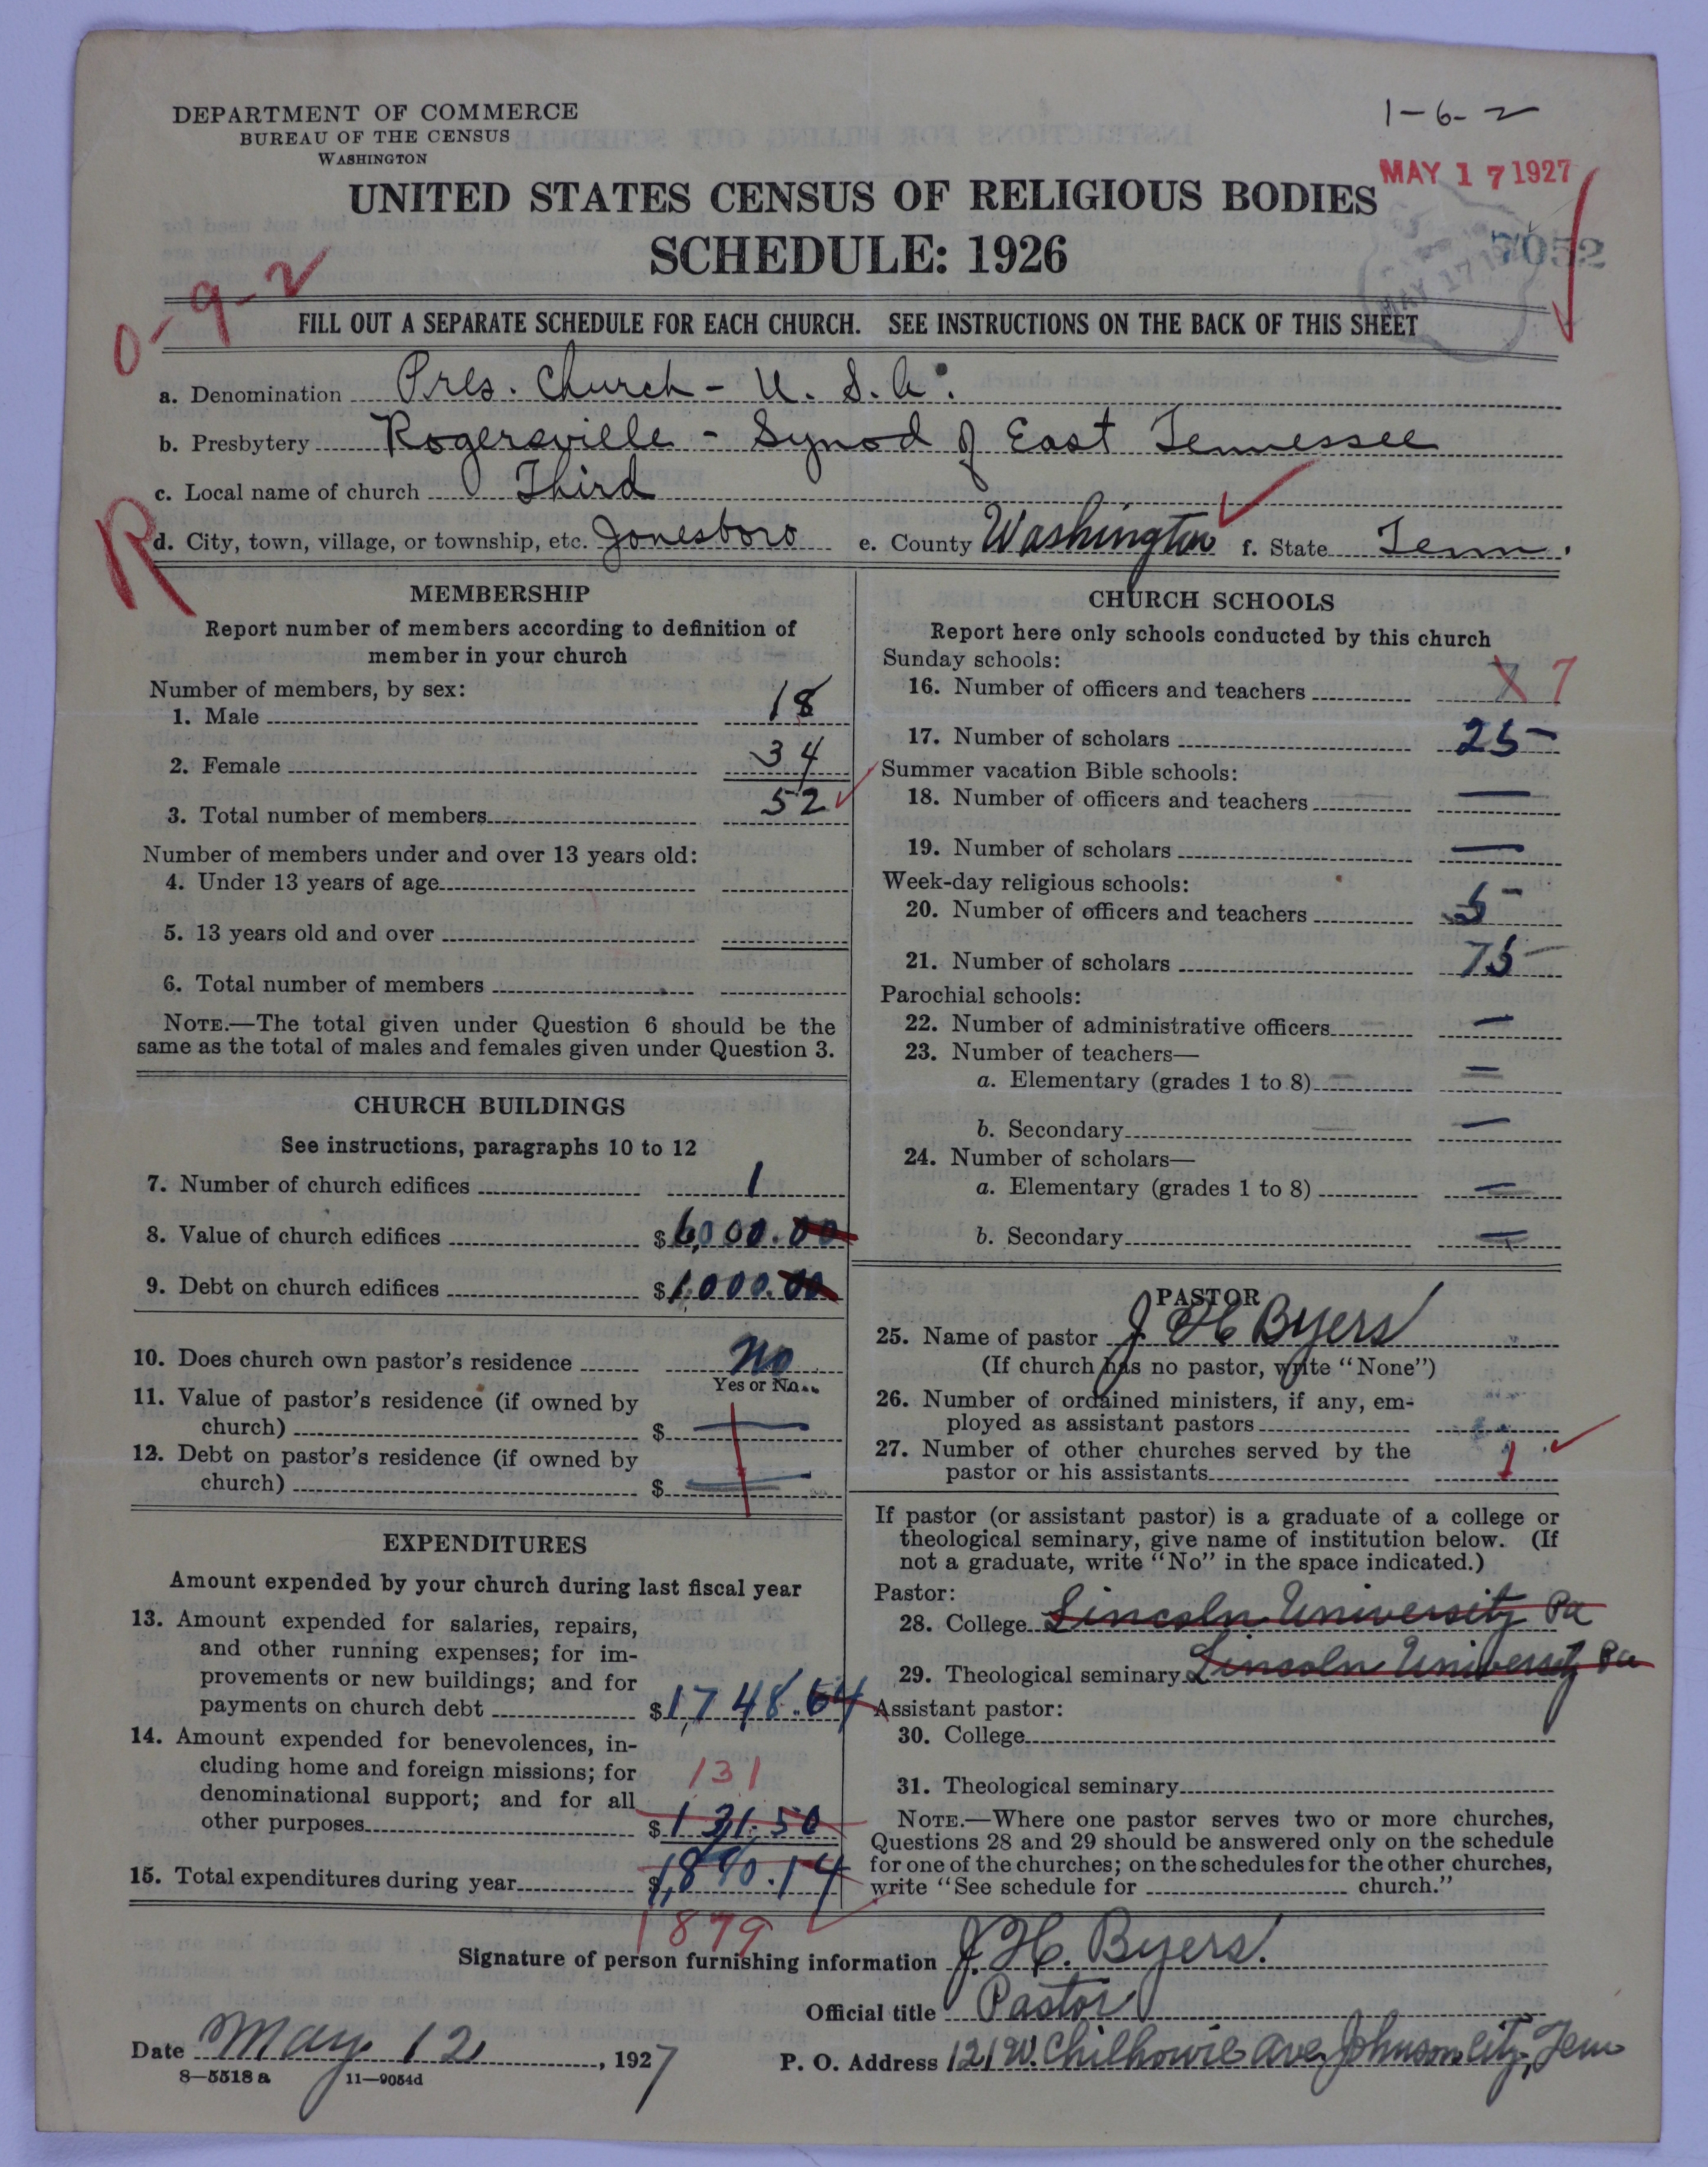 DEPARTMENT OF COMMERCE
BUREAU OF THE CENSUS
WASHINGTON
1-6-2
MAY 17 1927
UNITED STATES CENSUS OF RELIGIOUS BODIES
SCHEDULE: 1926
7052
MAY 17
0-9-2
FILL OUT A SEPARATE SCHEDULE FOR EACH CHURCH. SEE INSTRUCTIONS ON THE BACK OF THIS SHEET
a. Denomination Pres. Church - U. S. A.
b. Presbytery Rogersville - Synod of East Tennessee
c. Local name of church Third
R
d. City, town, village, or township, etc. Jonesboro e. County Washington f. State Tenn.
MEMBERSHIP
Report number of members according to definition of
member in your church
Number of members, by sex:
1. Male 18
2. Female 34
3. Total number of members 52
Number of members under and over 13 years old:
4. Under 13 years of age
5. 13 years old and over
6. Total number of members
NOTE.—The total given under Question 6 should be the
same as the total of males and females given under Question 3.
CHURCH BUILDINGS
See instructions, paragraphs 10 to 12
7. Number of church edifices 1
8. Value of church edifices $6,000.00
9. Debt on church edifices $1,000.00
10. Does church own pastor's residence No
Yes or No
11. Value of pastor's residence (if owned by
church) $ —
12. Debt on pastor's residence (if owned by
church) $ —
EXPENDITURES
Amount expended by your church during last fiscal year
13. Amount expended for salaries, repairs,
and other running expenses; for im-
provements or new buildings; and for
payments on church debt $1,748.64
14. Amount expended for benevolences, in-
cluding home and foreign missions; for
denominational support; and for all
131
other purposes $131.50
15. Total expenditures during year $1,880.14
1879
CHURCH SCHOOLS
Report here only schools conducted by this church
Sunday schools:
16. Number of officers and teachers 7 7
17. Number of scholars 25
Summer vacation Bible schools:
18. Number of officers and teachers —
19. Number of scholars —
Week-day religious schools:
20. Number of officers and teachers 5
21. Number of scholars 75
Parochial schools:
22. Number of administrative officers —
23. Number of teachers—
a. Elementary (grades 1 to 8) —
b. Secondary —
24. Number of scholars—
a. Elementary (grades 1 to 8) —
b. Secondary —
PASTOR
25. Name of pastor J. H. Byers
(If church has no pastor, write "None")
26. Number of ordained ministers, if any, em-
ployed as assistant pastors
27. Number of other churches served by the
pastor or his assistants 1
If pastor (or assistant pastor) is a graduate of a college or
theological seminary, give name of institution below. (If
not a graduate, write "No" in the space indicated.)
Pastor:
28. College Lincoln University Pa
29. Theological seminary Lincoln University Pa
Assistant pastor:
30. College
31. Theological seminary
NOTE.—Where one pastor serves two or more churches,
Questions 28 and 29 should be answered only on the schedule
for one of the churches; on the schedules for the other churches,
write "See schedule for church."
Signature of person furnishing information J. H. Byers.
Official title Pastor
Date May 12, 1927
P. O. Address 121 W. Chilhowie Ave, Johnson City, Tenn
8—5518 a 11—9054d